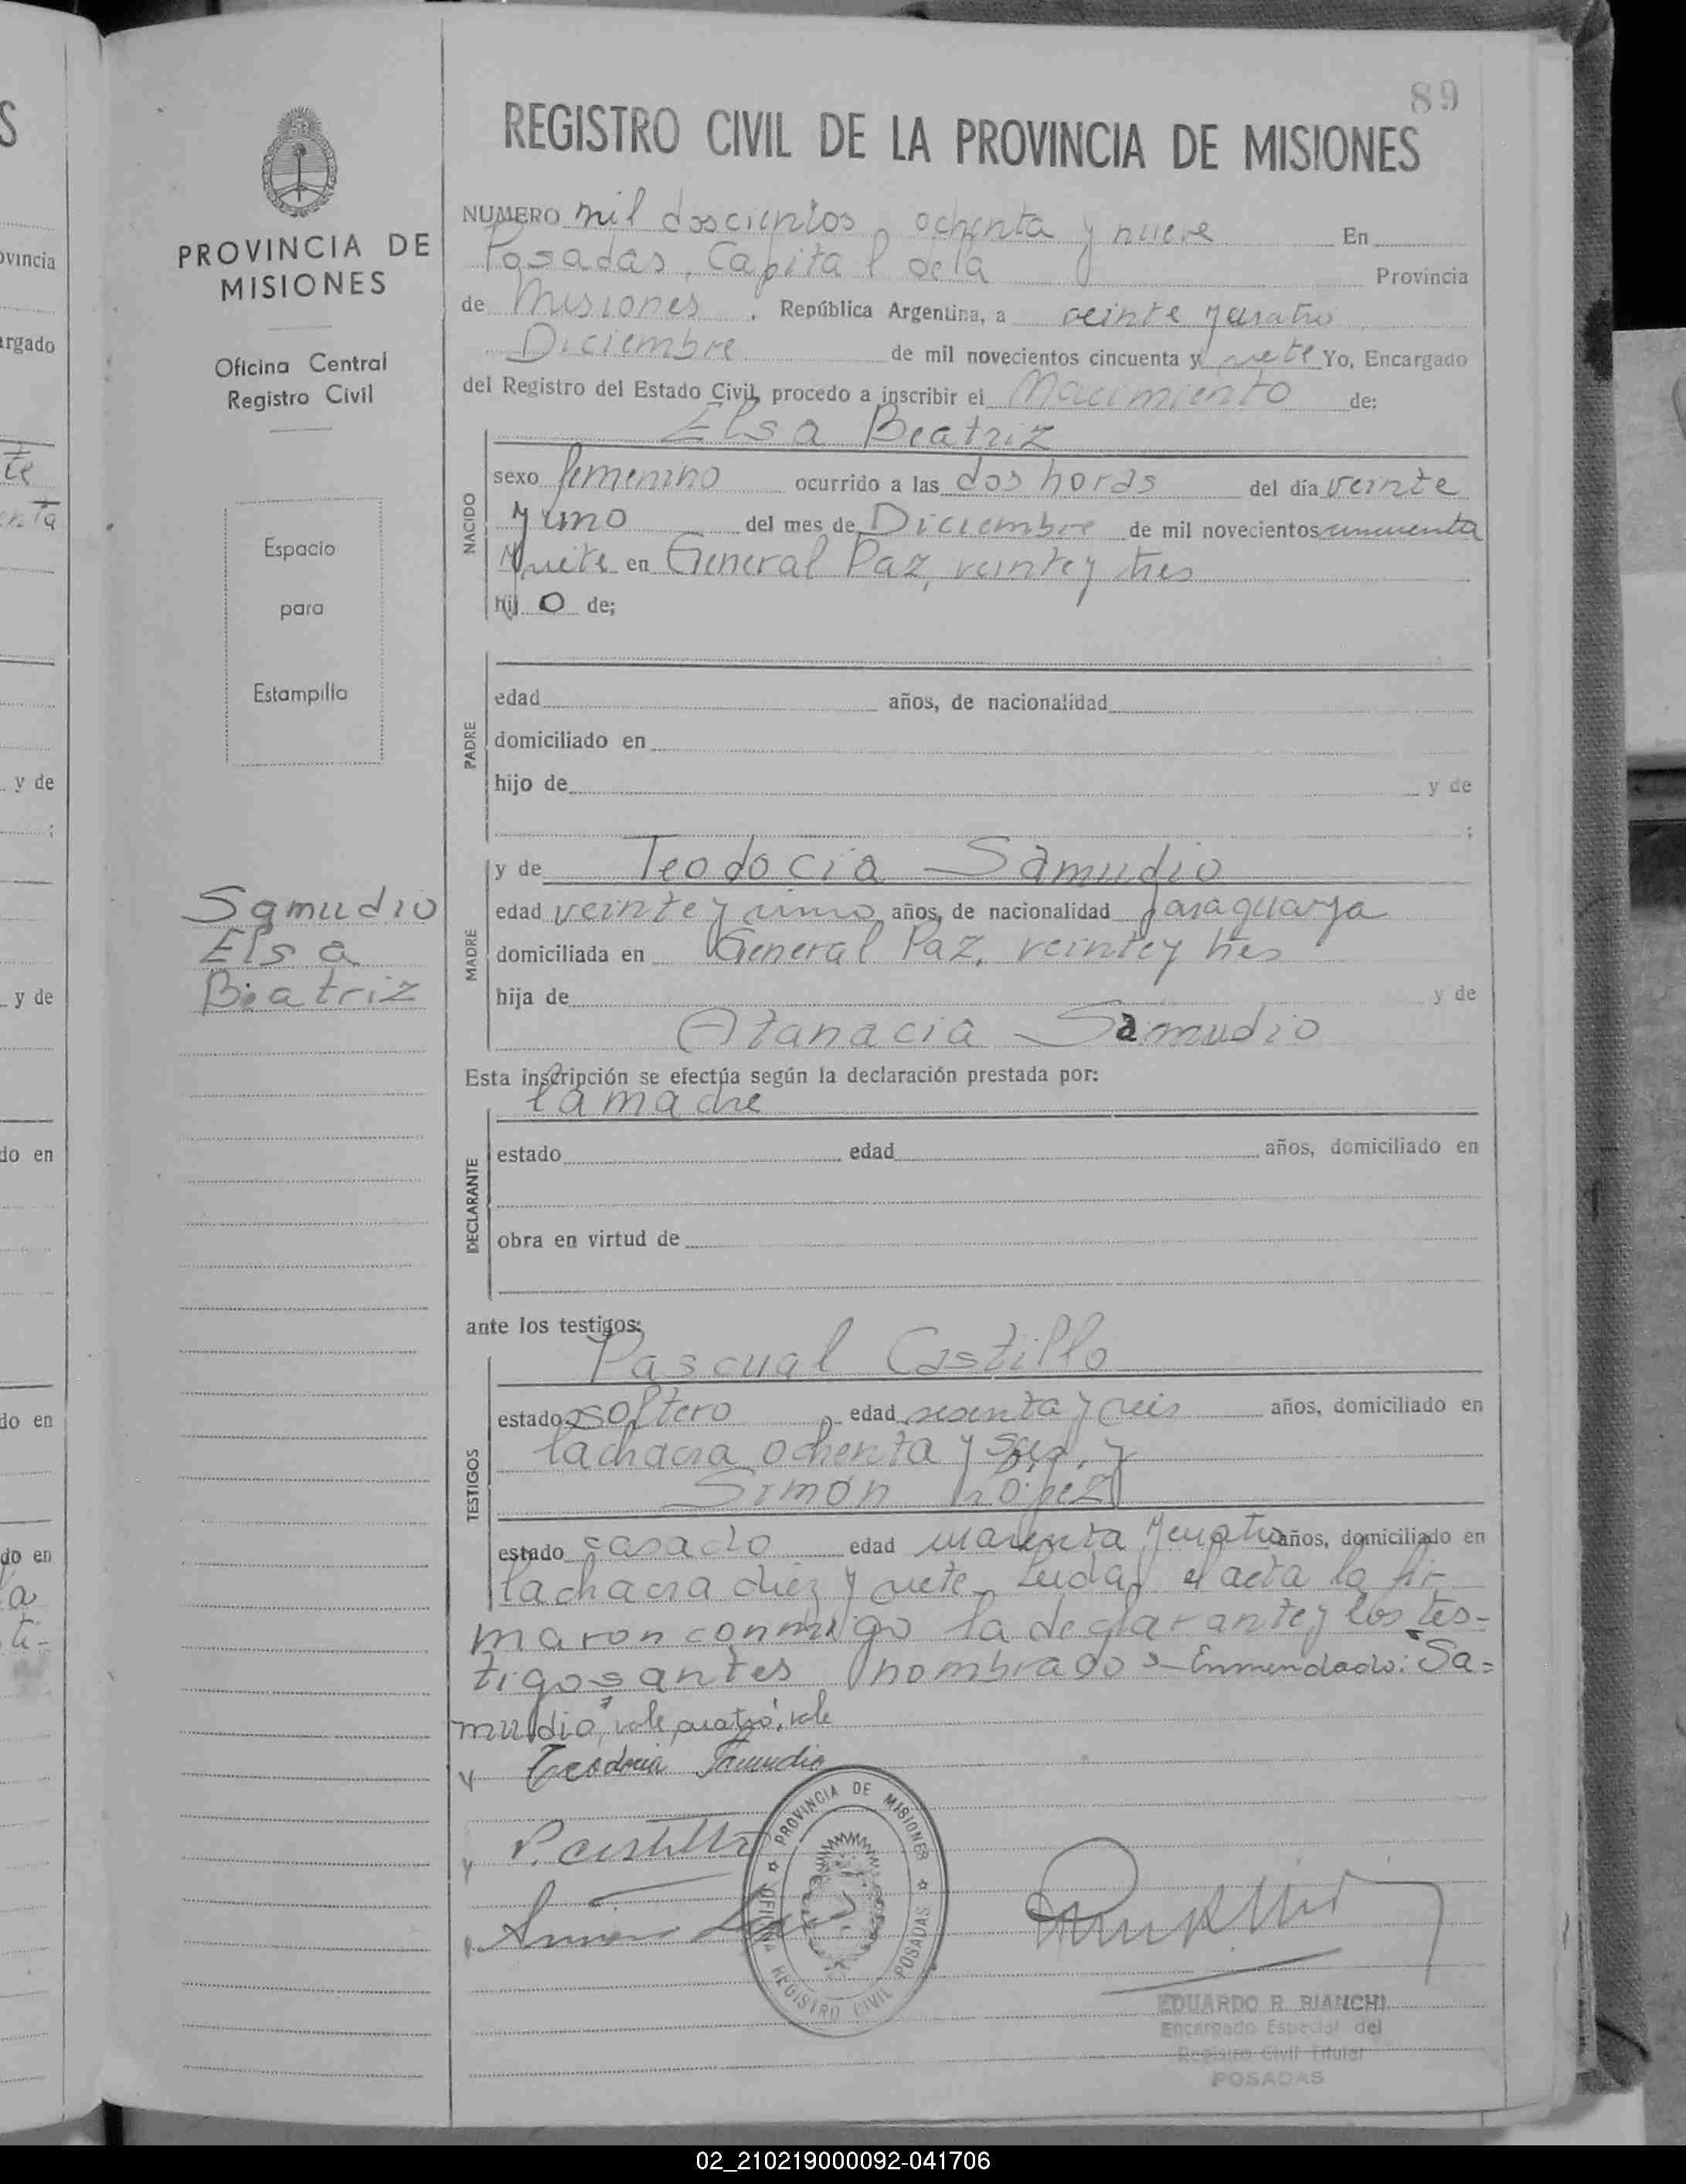 89
REGISTRO CIVIL DE LA PROVINCIA DE MISIONES
PROVINCIA DE
MISIONES
Oficina Central
Registro Civil
Espacio
para
Estampilla
Samudio
Elsa
Beatriz
NUMERO mil doscientos ochenta y nueve En
Posadas, Capital de la Provincia
de Misiones, República Argentina, a veinte y cuatro
Diciembre de mil novecientos cincuenta y siete Yo, Encargado
del Registro del Estado Civil, procedo a inscribir el Nacimiento de:
Elsa Beatriz
NACIDO
sexo femenino ocurrido a las dos horas del día veinte
y uno del mes de Diciembre de mil novecientos cincuenta
y siete en General Paz, veinte y tres
hij o de;
PADRE
edad años, de nacionalidad
domiciliado en
hijo de y de
;
MADRE
y de Teodocia Samudio
edad veinte y uno años, de nacionalidad paraguaya
domiciliada en General Paz, veinte y tres
hija de y de
Atanacia Samudio
Esta inscripción se efectúa según la declaración prestada por:
la madre
DECLARANTE
estado edad años, domiciliado en
obra en virtud de
ante los testigos:
Pascual Castillo
TESTIGOS
estado soltero edad sesenta y seis años, domiciliado en
la chacra ochenta y seis, y
Simón López
estado casado edad cuarenta y cuatro años, domiciliado en
la chacra diez y siete. Leída el acta la fir
maron conmigo la declarante y los tes-
tigos antes nombrados - Enmendado: "Sa=
mudio", vale, cuatro", vale
Teodocia Samudio
P. Castillo
PROVINCIA DE MISIONES
OFICINA REGISTRO CIVIL POSADAS
EDUARDO R. BIANCHI
Encargado Especial del
Registro Civil Titular
POSADAS
S
ovincia
argado
te
enta
y de
;
y de
do en
do en
do en
la
ti-
02_210219000092-041706